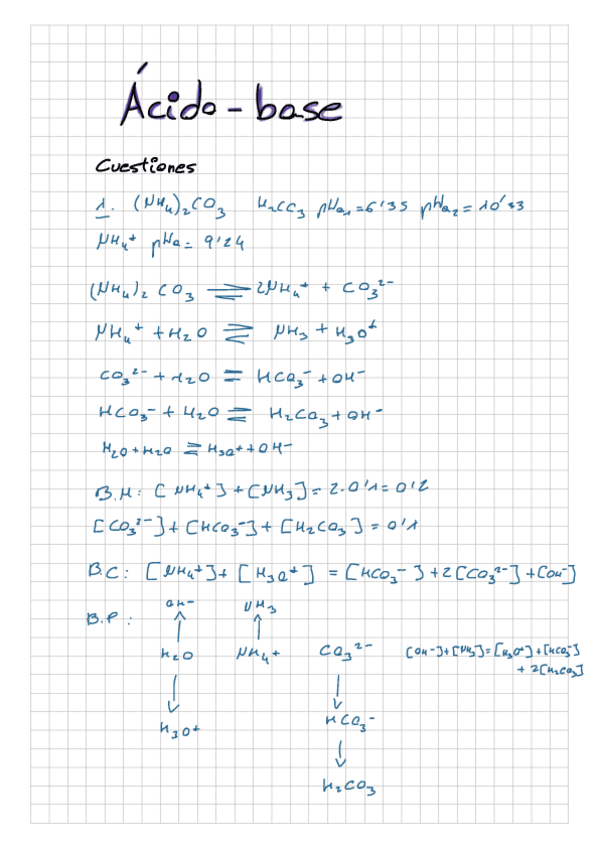 Ácido-base
Cuestiones
1. (NH₄)₂CO₃ H₂CO₃ pKa₁=6'35 pKa₂=10'33
NH₄⁺ pKa=9'24
(NH₄)₂CO₃ ⇌ 2NH₄⁺ + CO₃²⁻
NH₄⁺ + H₂O ⇌ NH₃ + H₃O⁺
CO₃²⁻ + H₂O ⇌ HCO₃⁻ + OH⁻
HCO₃⁻ + H₂O ⇌ H₂CO₃ + OH⁻
H₂O + H₂O ⇌ H₃O⁺ + OH⁻
B.M: [NH₄⁺] + [NH₃] = 2·0'1 = 0'2
[CO₃²⁻] + [HCO₃⁻] + [H₂CO₃] = 0'1
B.C: [NH₄⁺] + [H₃O⁺] = [HCO₃⁻] + 2[CO₃²⁻] + [OH⁻]
OH⁻ NH₃
B.P:
↑ ↑
H₂O NH₄⁺ CO₃²⁻ [OH⁻]+[NH₃]=[H₃O⁺]+[HCO₃⁻]
+ 2[H₂CO₃]
↓ ↓
H₃O⁺ HCO₃⁻
↓
H₂CO₃